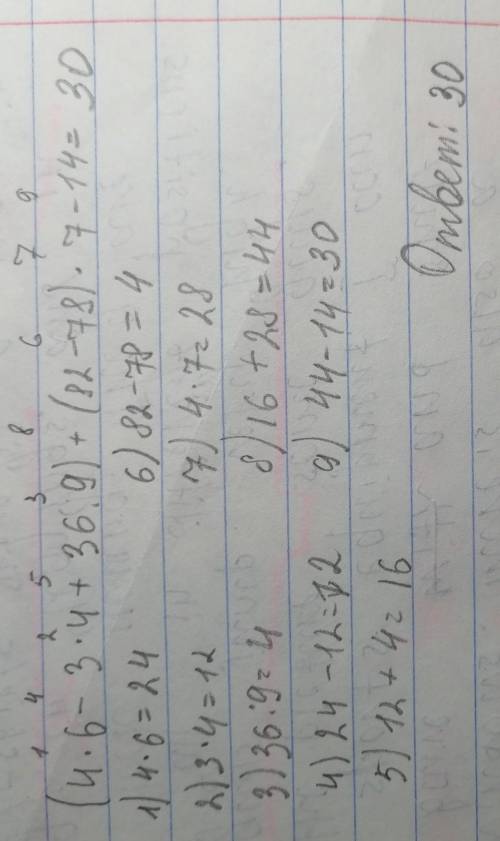 1 4 2 5 3 8 6 7 9
(4·6-3·4+36:9)+(82-78)·7-14=30
1) 4·6=24 6) 82-78=4
2) 3·4=12 7) 4·7=28
3) 36:9=4 8) 16+28=44
4) 24-12=12 9) 44-14=30
5) 12+4=16
Ответ: 30